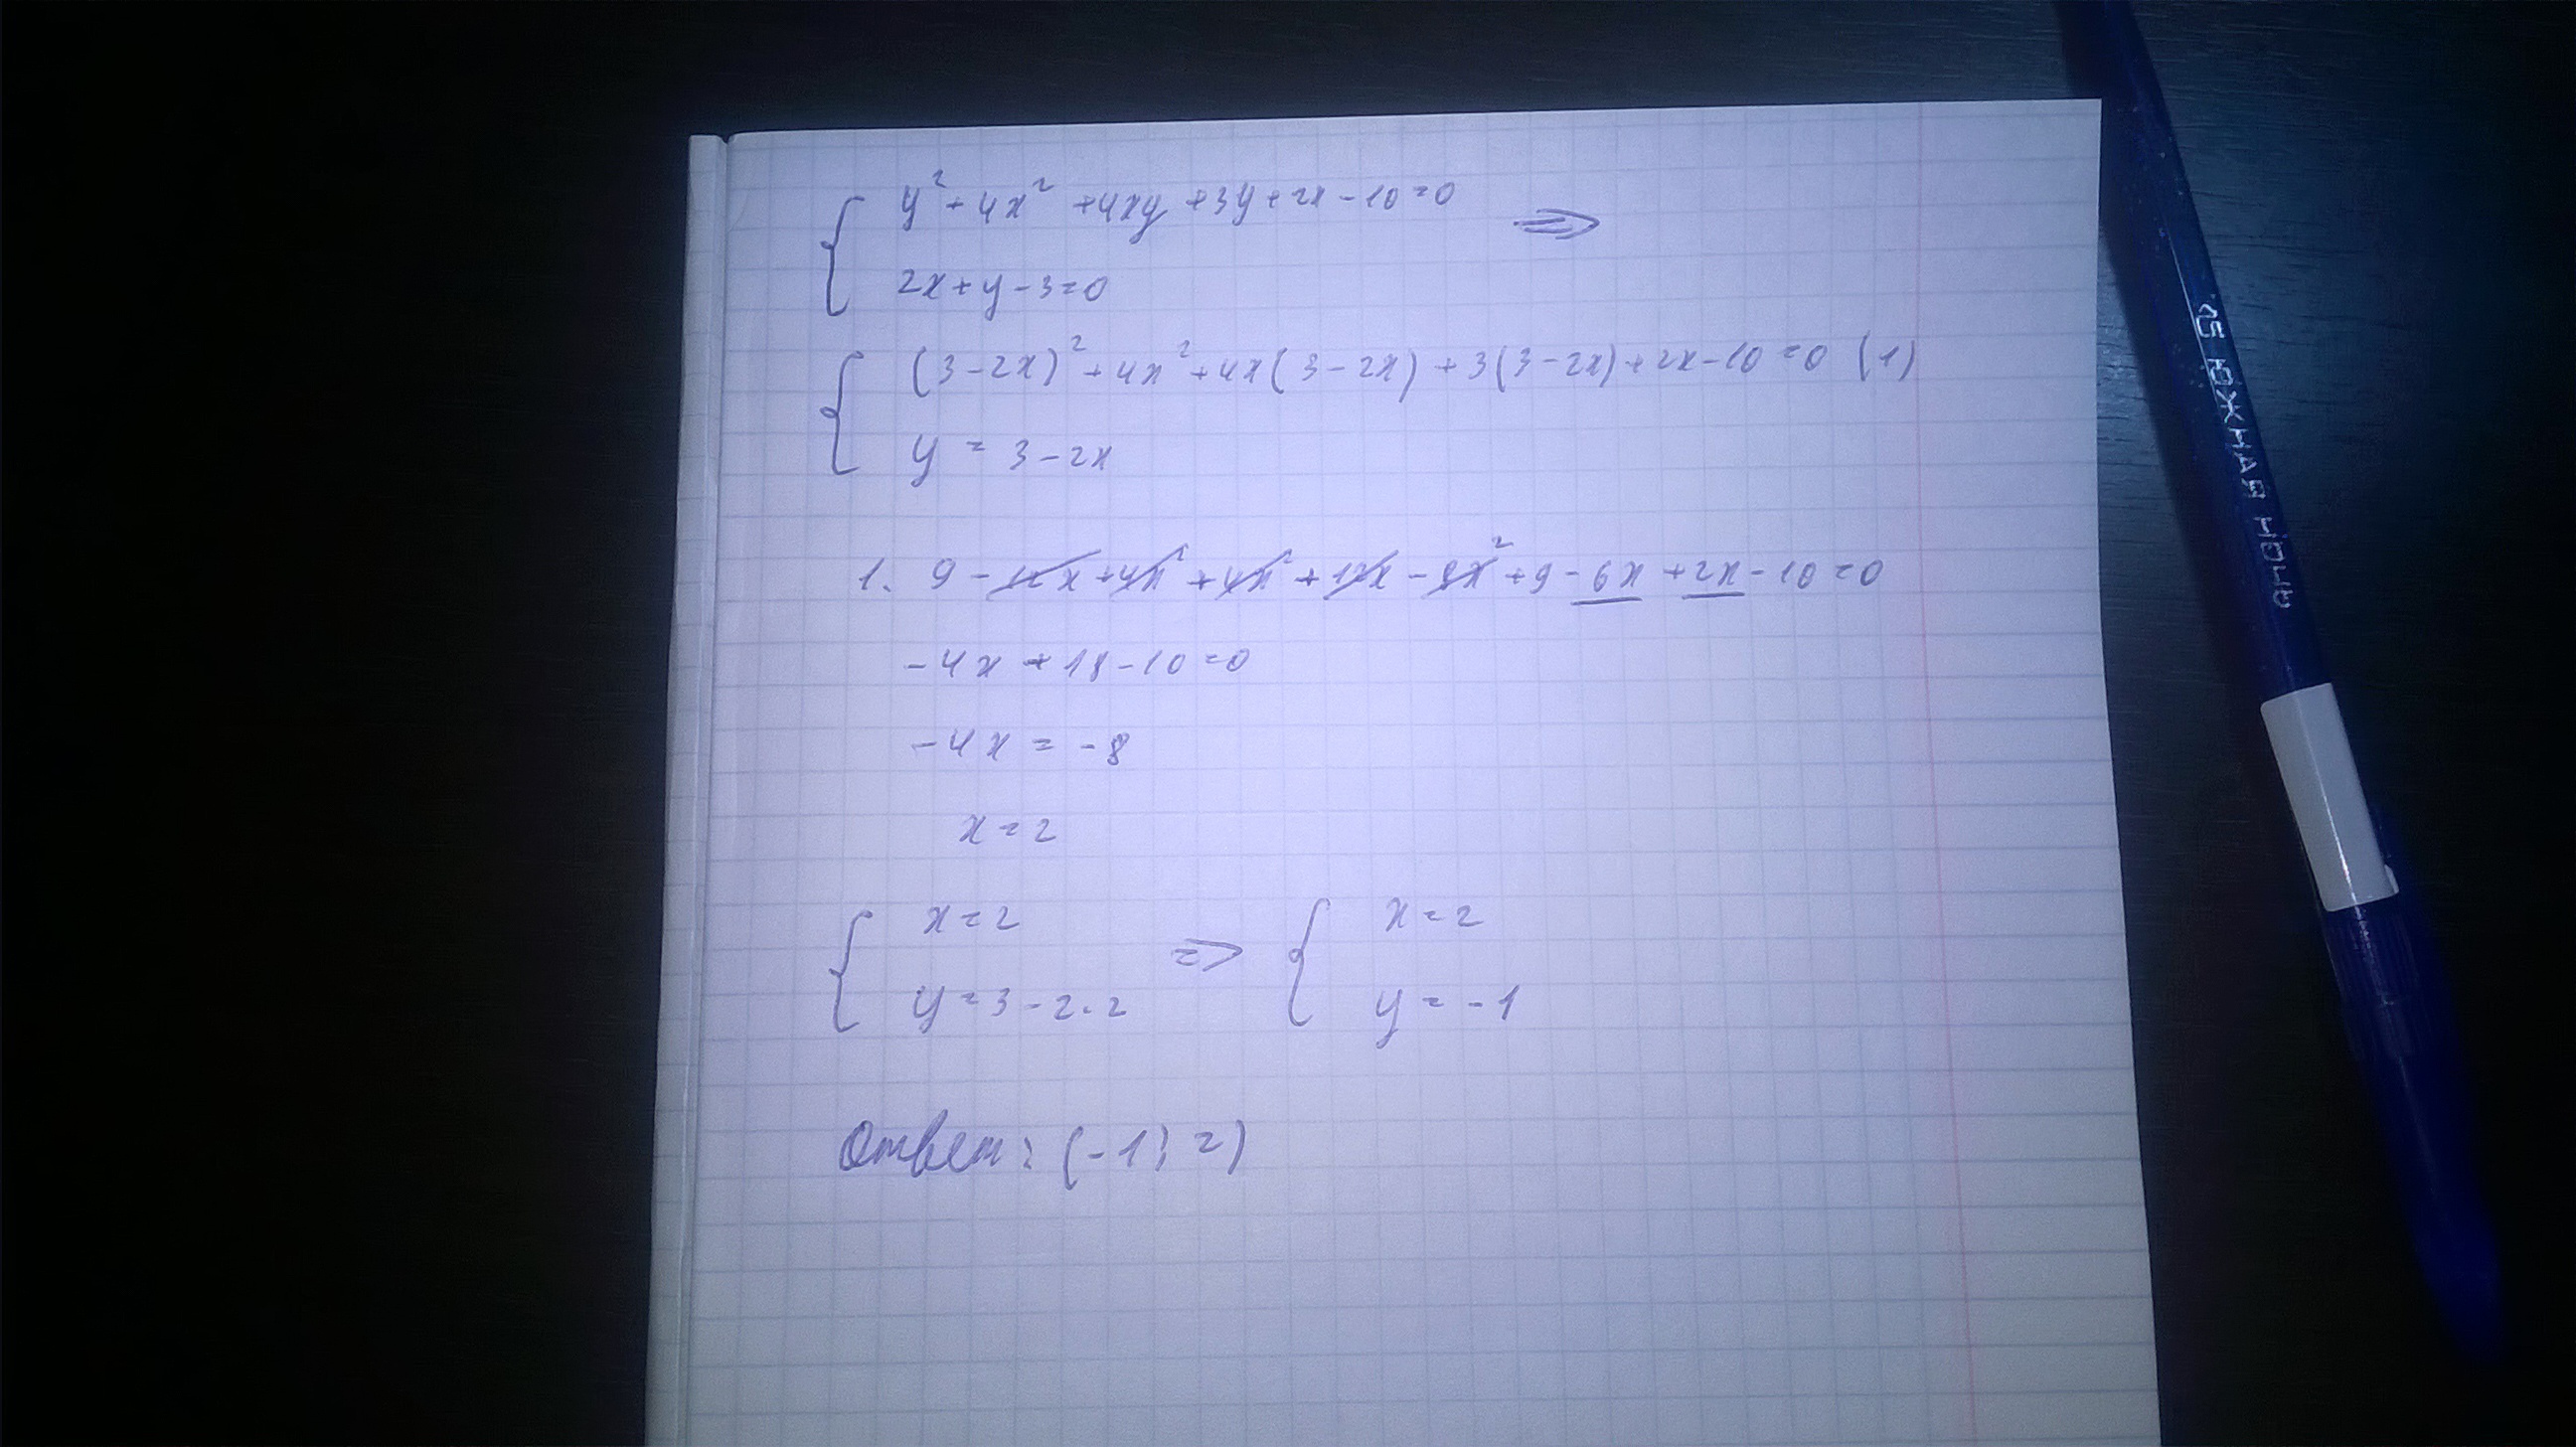 y² + 4x² + 4xy + 3y + 2x - 10 = 0 ⇒
2x + y - 3 = 0
(3 - 2x)² + 4x² + 4x(3 - 2x) + 3(3 - 2x) + 2x - 10 = 0 (1)
y = 3 - 2x
1. 9 - 12x + 4x² + 4x² + 12x - 8x² + 9 - 6x + 2x - 10 = 0
-4x + 18 - 10 = 0
-4x = -8
x = 2
x = 2 ⇒ x = 2
y = 3 - 2·2 y = -1
Ответ: (-1; 2)
ЮЖНАЯ НОЧЬ